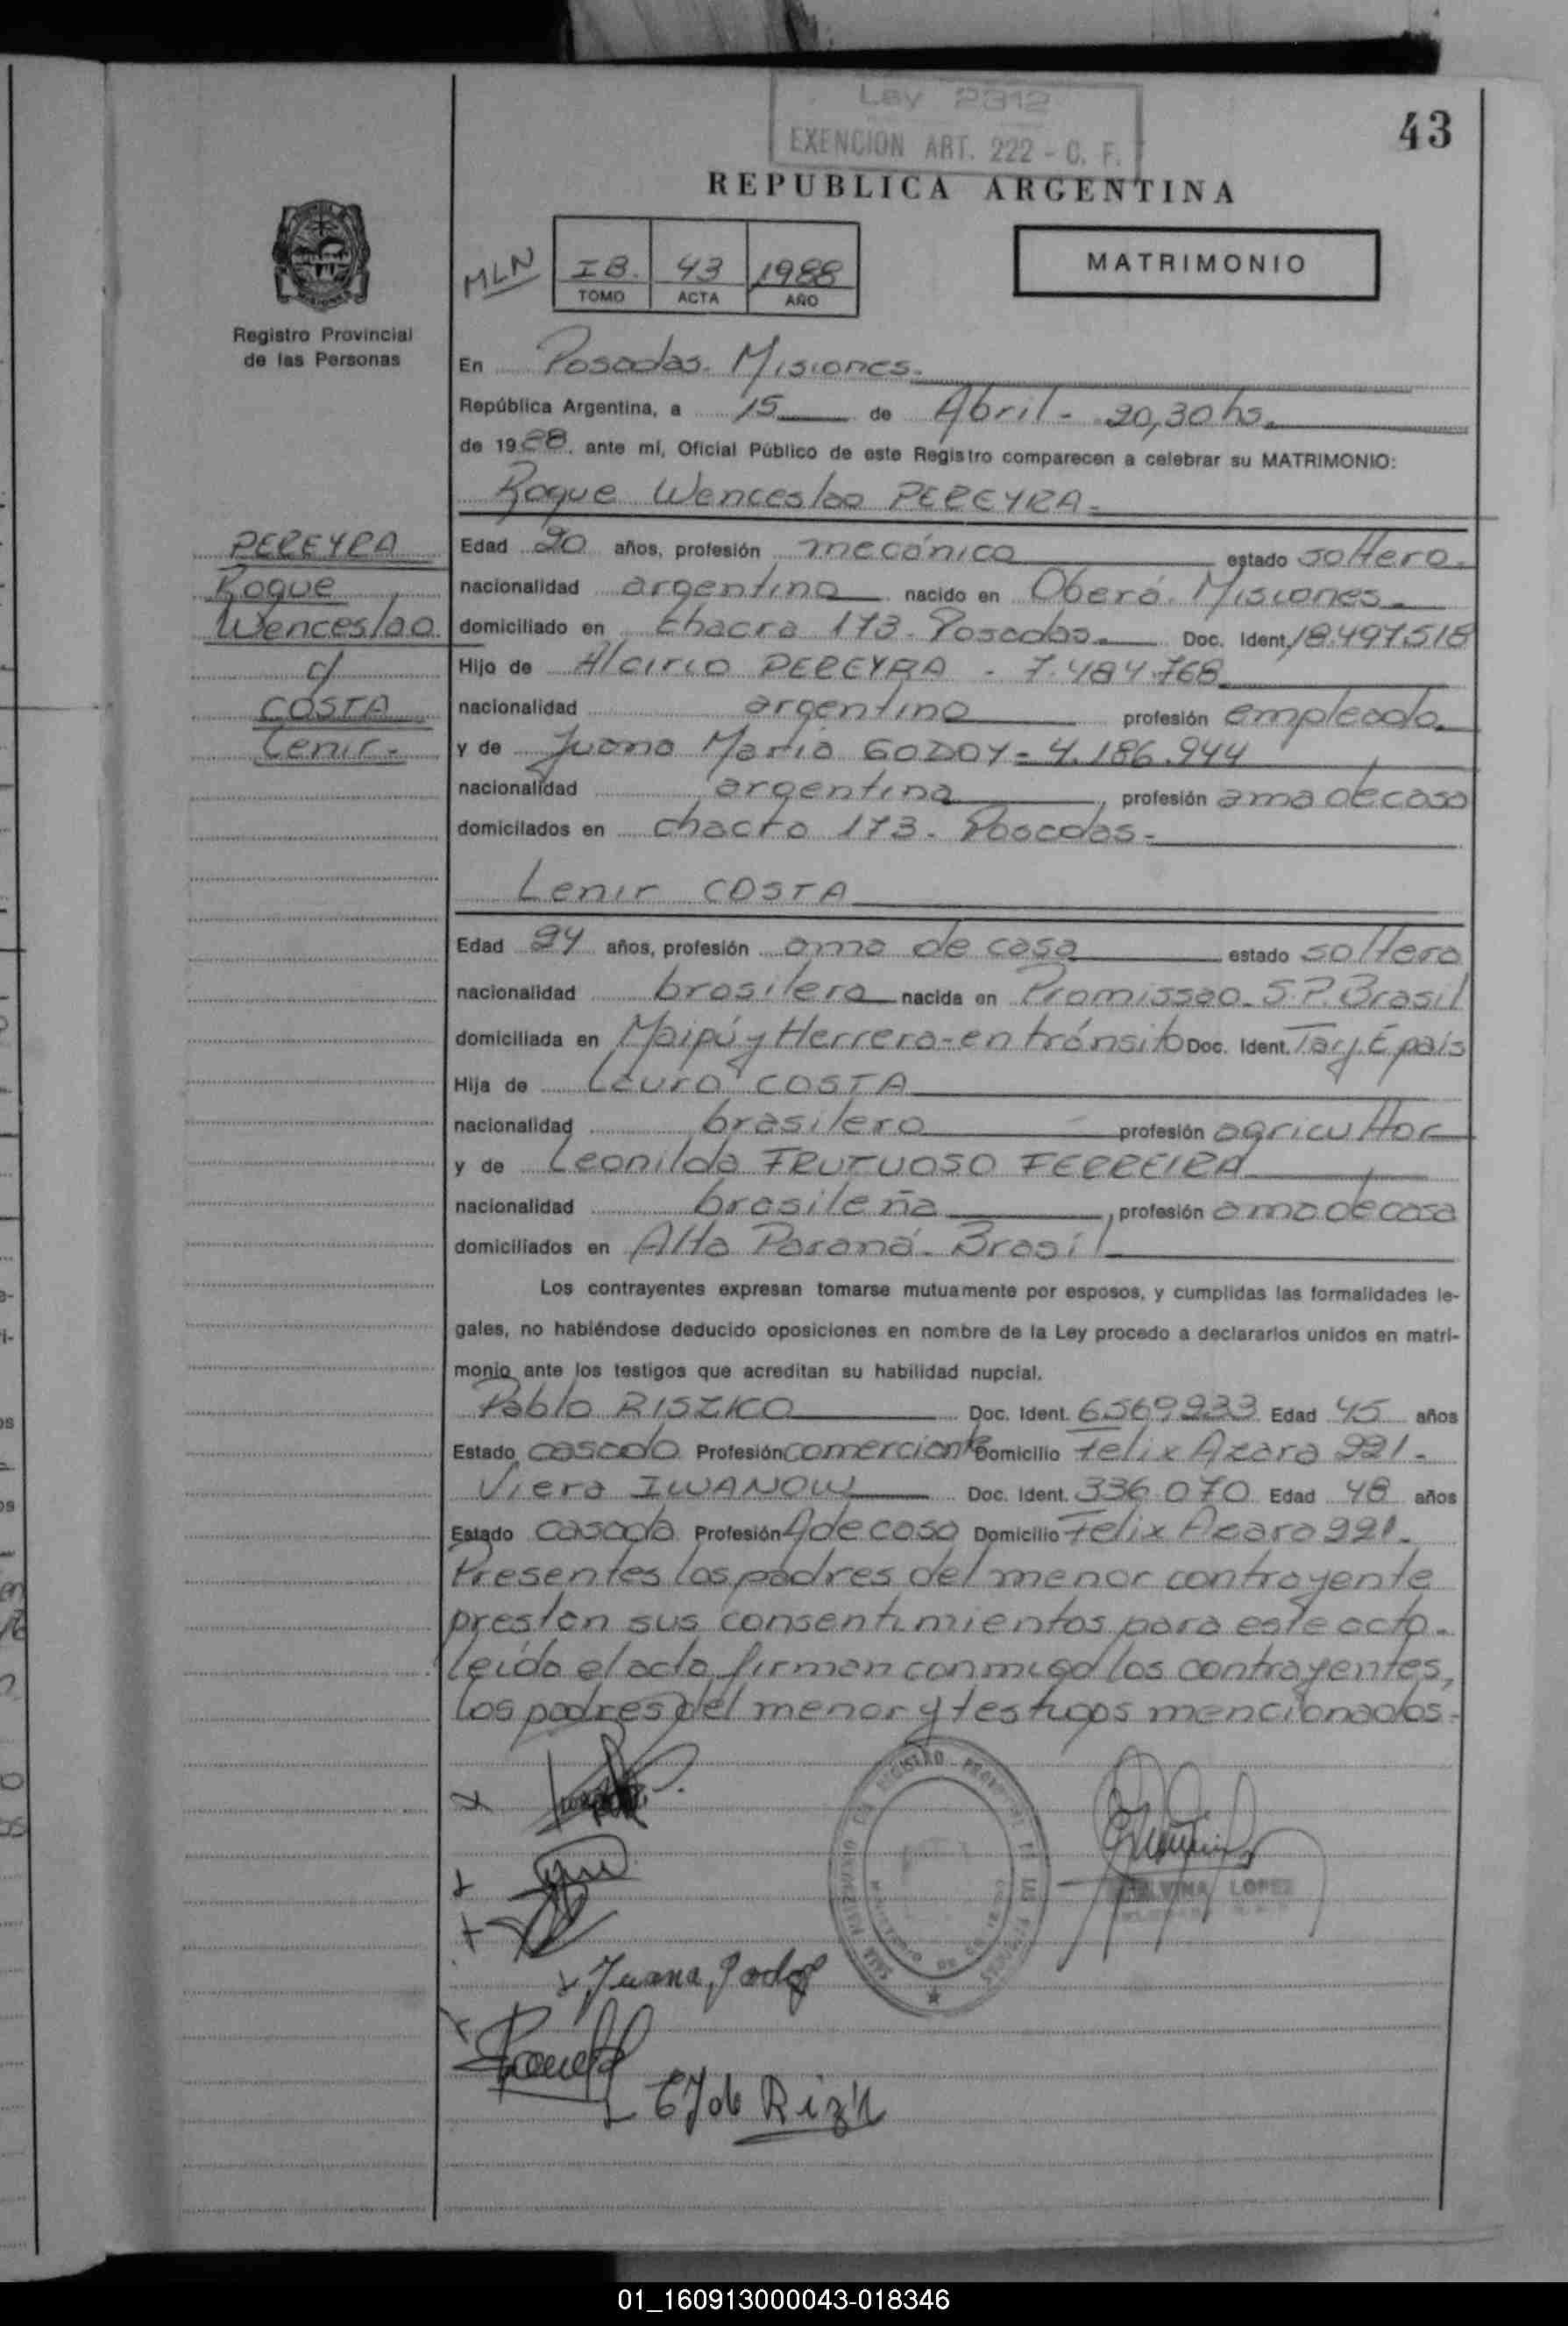 Ley 2312
EXENCION ART. 222 - C. F.
43
REPUBLICA ARGENTINA
MLN
I B. 43 1988
TOMO ACTA AÑO
MATRIMONIO
Registro Provincial
de las Personas
En Posadas. Misiones.
República Argentina, a 15 de Abril - 20,30 hs.
de 1988. ante mí, Oficial Público de este Registro comparecen a celebrar su MATRIMONIO:
Roque Wenceslao PEREYRA-
PEREYRA
Roque
Wenceslao
c/
COSTA
Lenir-
Edad 20 años, profesión mecánico estado soltero.
nacionalidad argentina nacido en Oberá. Misiones.
domiciliado en Chacra 173. Posadas. Doc. Ident. 18.497.518
Hijo de Alcirio PEREYRA - 7.484.768
nacionalidad argentino profesión empleado.
y de Juana Maria GODOY- 4.186.944
nacionalidad argentina, profesión ama de casa
domicilados en chacra 173. Posadas-
Lenir COSTA
Edad 24 años, profesión ama de casa estado soltera
nacionalidad brasilera nacida en Promissao. S.P. Brasil
domiciliada en Maipú y Herrera-en tránsito Doc. Ident. Tarj. E país
Hija de Lauro COSTA
nacionalidad brasilero profesión agricultor
y de Leonilda FRUTUOSO FERREIRA
nacionalidad brasileña, profesión ama de casa
domiciliados en Alto Paraná. Brasil
Los contrayentes expresan tomarse mutuamente por esposos, y cumplidas las formalidades le-
gales, no habiéndose deducido oposiciones en nombre de la Ley procedo a declararlos unidos en matri-
monio ante los testigos que acreditan su habilidad nupcial.
Pablo RISZKO Doc. Ident. 6569933 Edad 45 años
Estado casado Profesión comerciante Domicilio Felix Azara 921-
Viera IWANOW Doc. Ident. 336.070 Edad 48 años
Estado casada Profesión A de casa Domicilio Felix Azara 921.
Presentes los padres del menor contrayente
prestan sus consentimientos para este acto.
leída el acta firman conmigo los contrayentes,
los padres del menor y testigos mencionados-
LOPEZ
Juana Godoy
01_160913000043-018346